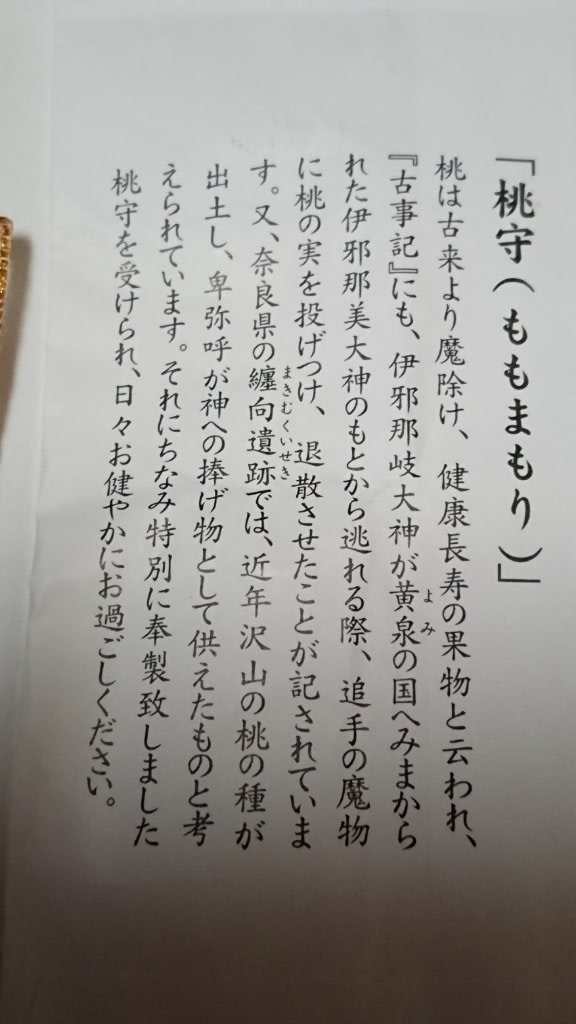 「桃守(ももまもり)」
桃は古来より魔除け、健康長寿の果物と云われ、
『古事記』にも、伊邪那岐大神が黄泉の国へみまから
よみ
れた伊邪那美大神のもとから逃れる際、追手の魔物
に桃の実を投げつけ、退散させたことが記されていま
す。又、奈良県の纏向遺跡では、近年沢山の桃の種が
まきむくいせき
出土し、卑弥呼が神への捧げ物として供えたものと考
えられています。それにちなみ特別に奉製致しました
桃守を受けられ、日々お健やかにお過ごしください。